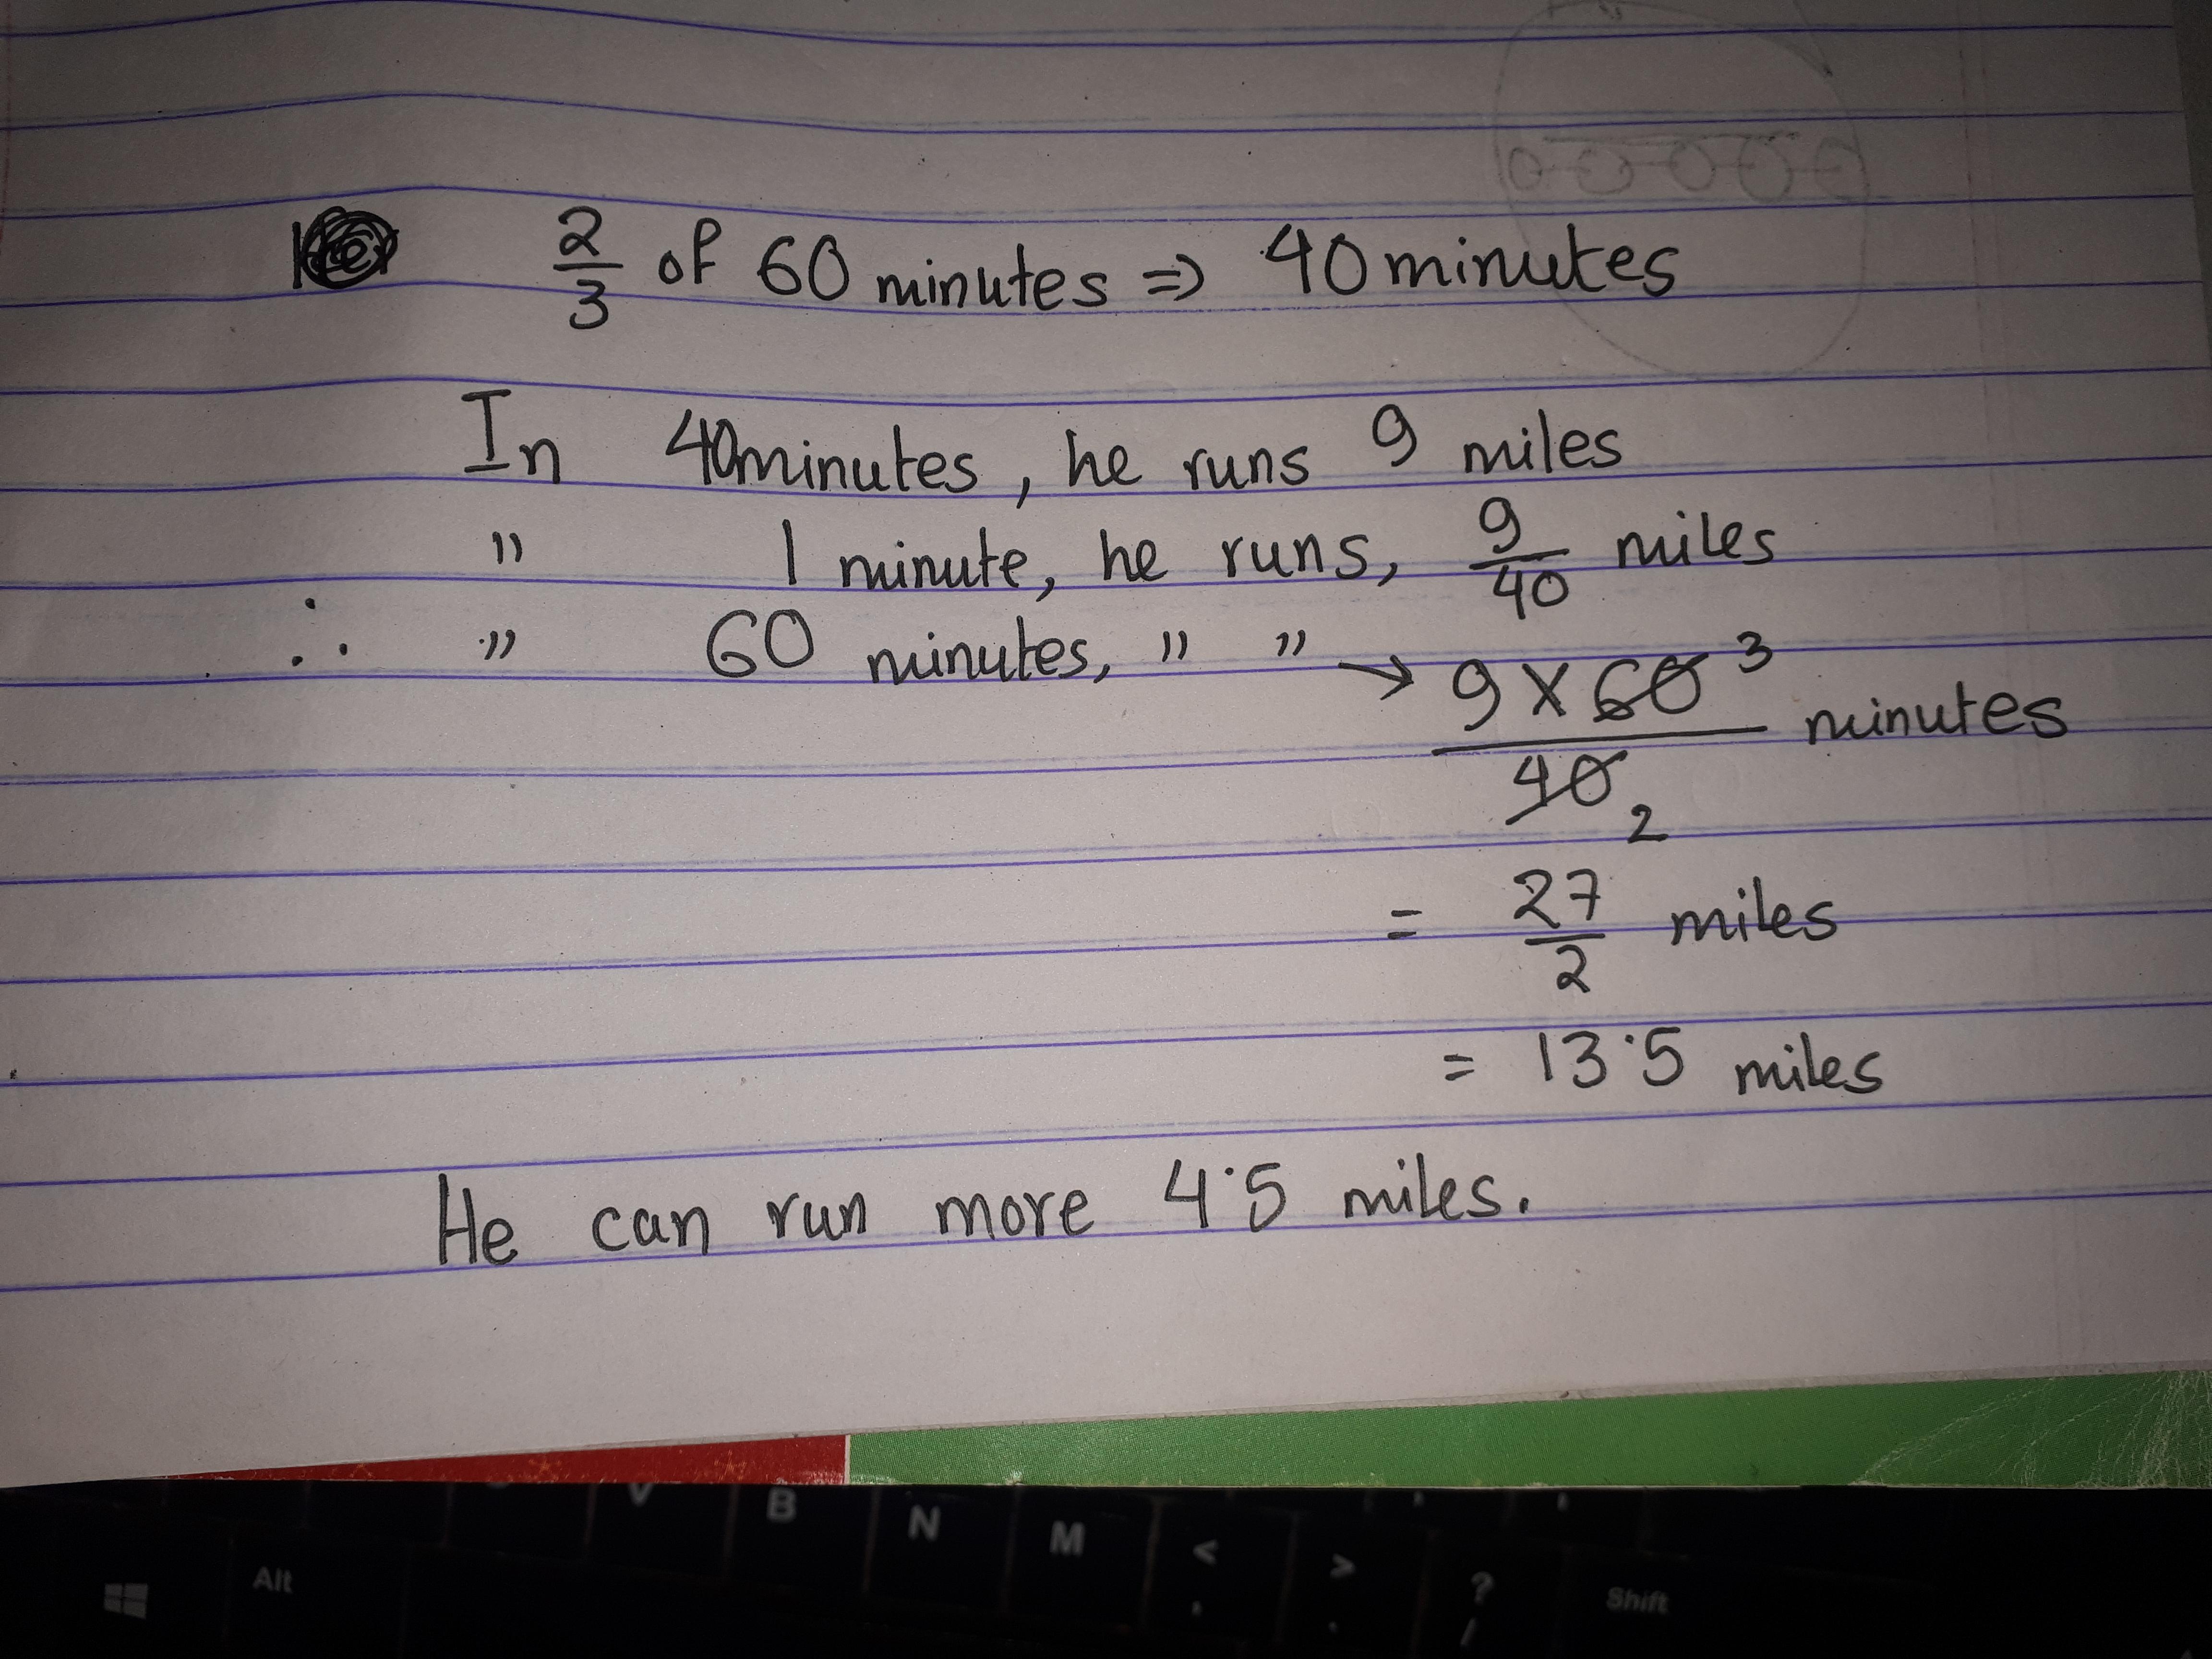 2/3 of 60 minutes ⇒ 40 minutes
In 40minutes, he runs 9 miles
" 1 minute, he runs, 9/40 miles
∴ " 60 minutes, " " → 9 × 60 3 / 40 2 minutes
= 27/2 miles
= 13·5 miles
He can run more 4·5 miles.
V B N M < , > . ? / Shift
Alt